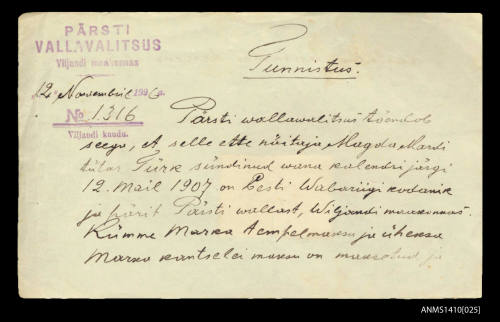 PÄRSTI
VALLAVALITSUS
Viljandi maakonnas
12. Novembril 1926 a.
No 1316
Viljandi kaudu.
Tunnistus.
Pärsti wallawalitsus tõendab
seega, et selle ette näitaja Magda Mardi
tütar Türk sündinud wana kalendri järgi
12. Mail 1907 on Eesti Wabariigi kodanik
ja pärit Pärsti wallast, Wiljandi maakonnas.
Kümme Marka tempelmaksu ja üheksa
Marka kantselei maksu on maksetud ja
ANMS1410[025]